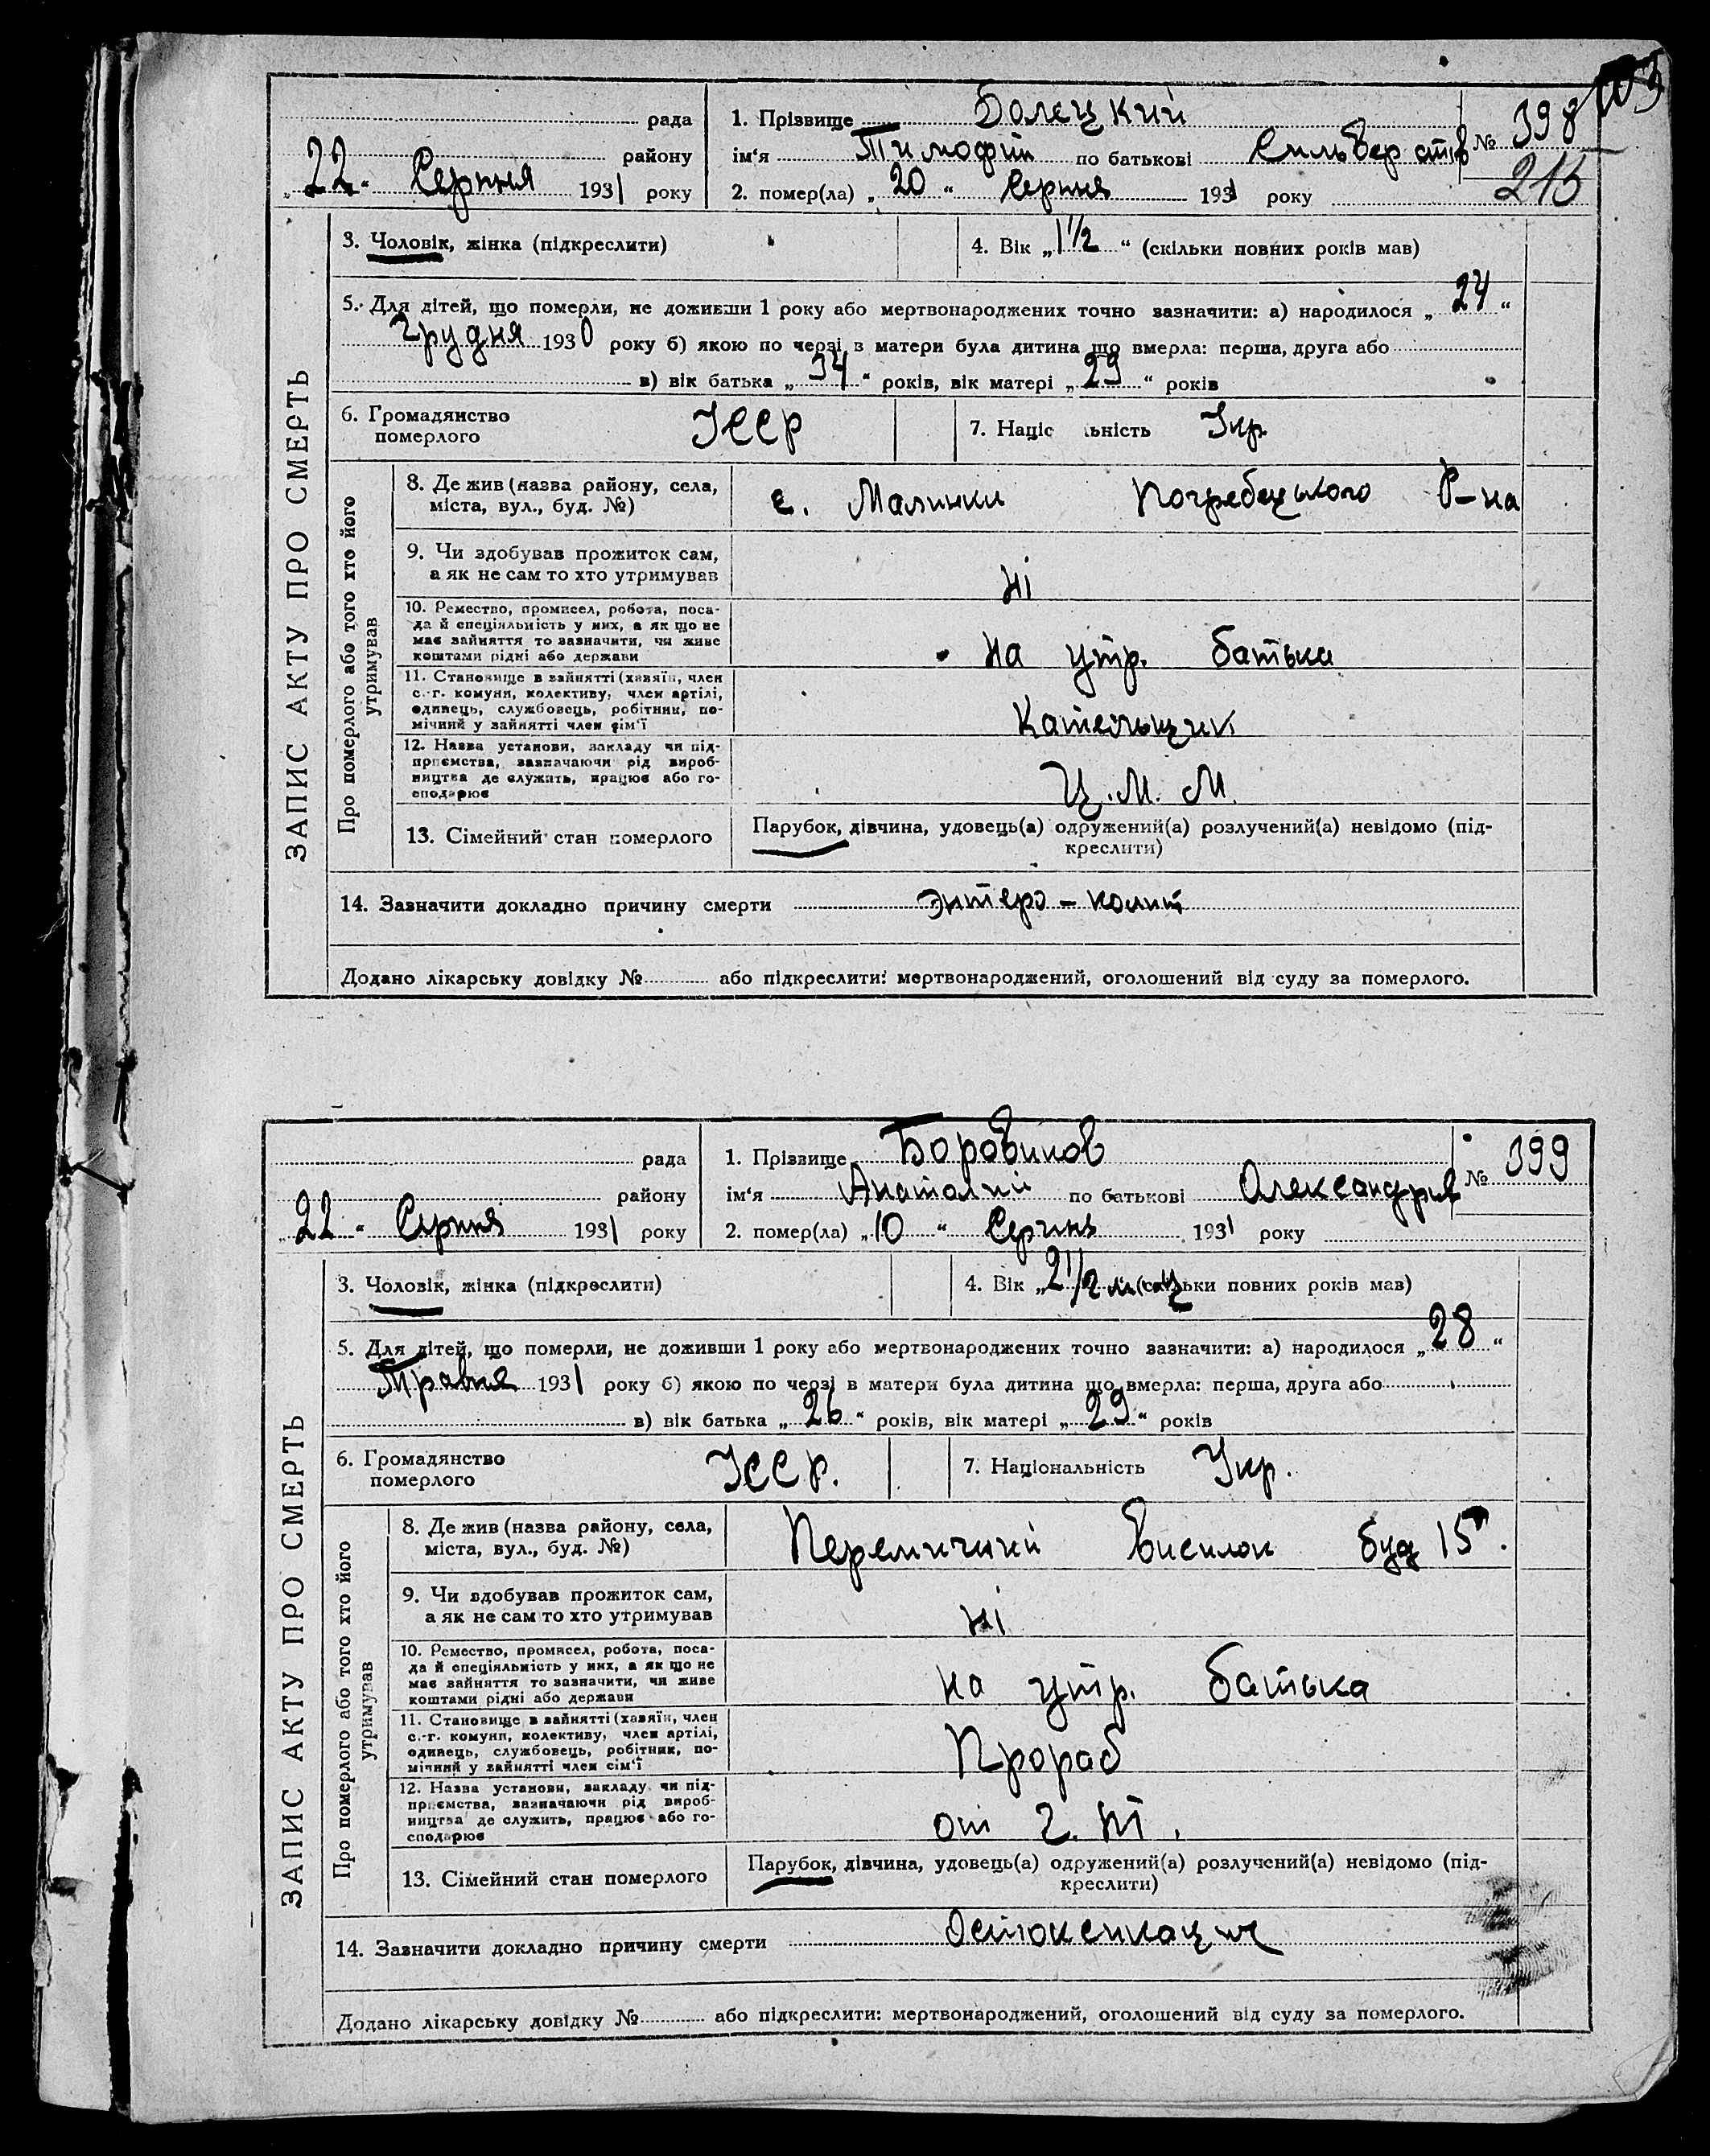 103
рада
1. Прізвище Болецкий
№ 398
району
ім‘я Тимофій по батькові Сильверстів
215
„22“ Серпня 1931 року
2. помер(ла) „20“ Серпня 1931 року
3. Чоловік, жінка (підкреслити)
4. Вік „1 1/2“ (скільки повних років мав)
5. Для дітей, що померли, не доживши 1 року або мертвонароджених точно зазначити: а) народилося „24“
Грудня 1930 року б) якою по черзі в матери була дитина що вмерла: перша, друга або
в) вік батька „34“ років, вік матері „29“ років
6. Громадянство
померлого
УССР
7. Націс ьність Укр.
ЗАПИС АКТУ ПРО СМЕРТЬ
Про померлого або того хто його
утримував
8. Де жив (назва району, села,
міста, вул., буд. №)
с. Малинки Погребецького Р-на
9. Чи здобував прожиток сам,
а як не сам то хто утримував
Ні
10. Ремество, промисел, робота, поса-
да й спеціяльність у них, а як що не
має зайняття то зазначити, чи живе
коштами рідні або держави
На утр. батька
11. Становище в зайнятті (хазяїн, член
с.-г. комуни, колективу, член артілі,
одинець, службовець, робітник, по-
мічний у зайнятті член сім‘ї
Кательщик
12. Назва установи, закладу чи під-
приємства, зазначаючи рід вироб-
ництва де служить, працює або го-
сподарює
Ц. М. М.
13. Сімейний стан померлого
Парубок, дівчина, удовець(а) одружений(а) розлучений(а) невідомо (під-
креслити)
14. Зазначити докладно причину смерти Энтеро-колит
Додано лікарську довідку № або підкреслити: мертвонароджений, оголошений від суду за померлого.
рада
1. Прізвище Боровиков
№ 399
району
ім‘я Анатолий по батькові Олександрів
„22“ Серпня 1931 року
2. помер(ла) „10“ Серпня 1931 року
3. Чоловік, жінка (підкреслити)
4. Вік „2 1/2 м-ц (скільки повних років мав)
5. Для дітей, що померли, не доживши 1 року або мертвонароджених точно зазначити: а) народилося „28“
Травня 1931 року б) якою по черзі в матери була дитина що вмерла: перша, друга або
в) вік батька „26“ років, вік матері „29“ років
6. Громадянство
померлого
УССР.
7. Національність Укр.
ЗАПИС АКТУ ПРО СМЕРТЬ
Про померлого або того хто його
утримував
8. Де жив (назва району, села,
міста, вул., буд. №)
Висилок буд 15.
9. Чи здобував прожиток сам,
а як не сам то хто утримував
Ні
10. Ремество, промисел, робота, поса-
да й спеціяльність у них, а як що не
має зайняття то зазначити, чи живе
коштами рідні або держави
На утр. батька
11. Становище в зайнятті (хазяїн, член
с.-г. комуни, колективу, член артілі,
одинець, службовець, робітник, по-
мічний у зайнятті член сім‘ї
Прораб
12. Назва установи, закладу чи під-
приємства, зазначаючи рід вироб-
ництва де служить, працює або го-
сподарює
13. Сімейний стан померлого
Парубок, дівчина, удовець(а) одружений(а) розлучений(а) невідомо (під-
креслити)
14. Зазначити докладно причину смерти
Додано лікарську довідку № або підкреслити: мертвонароджений, оголошений від суду за померлого.